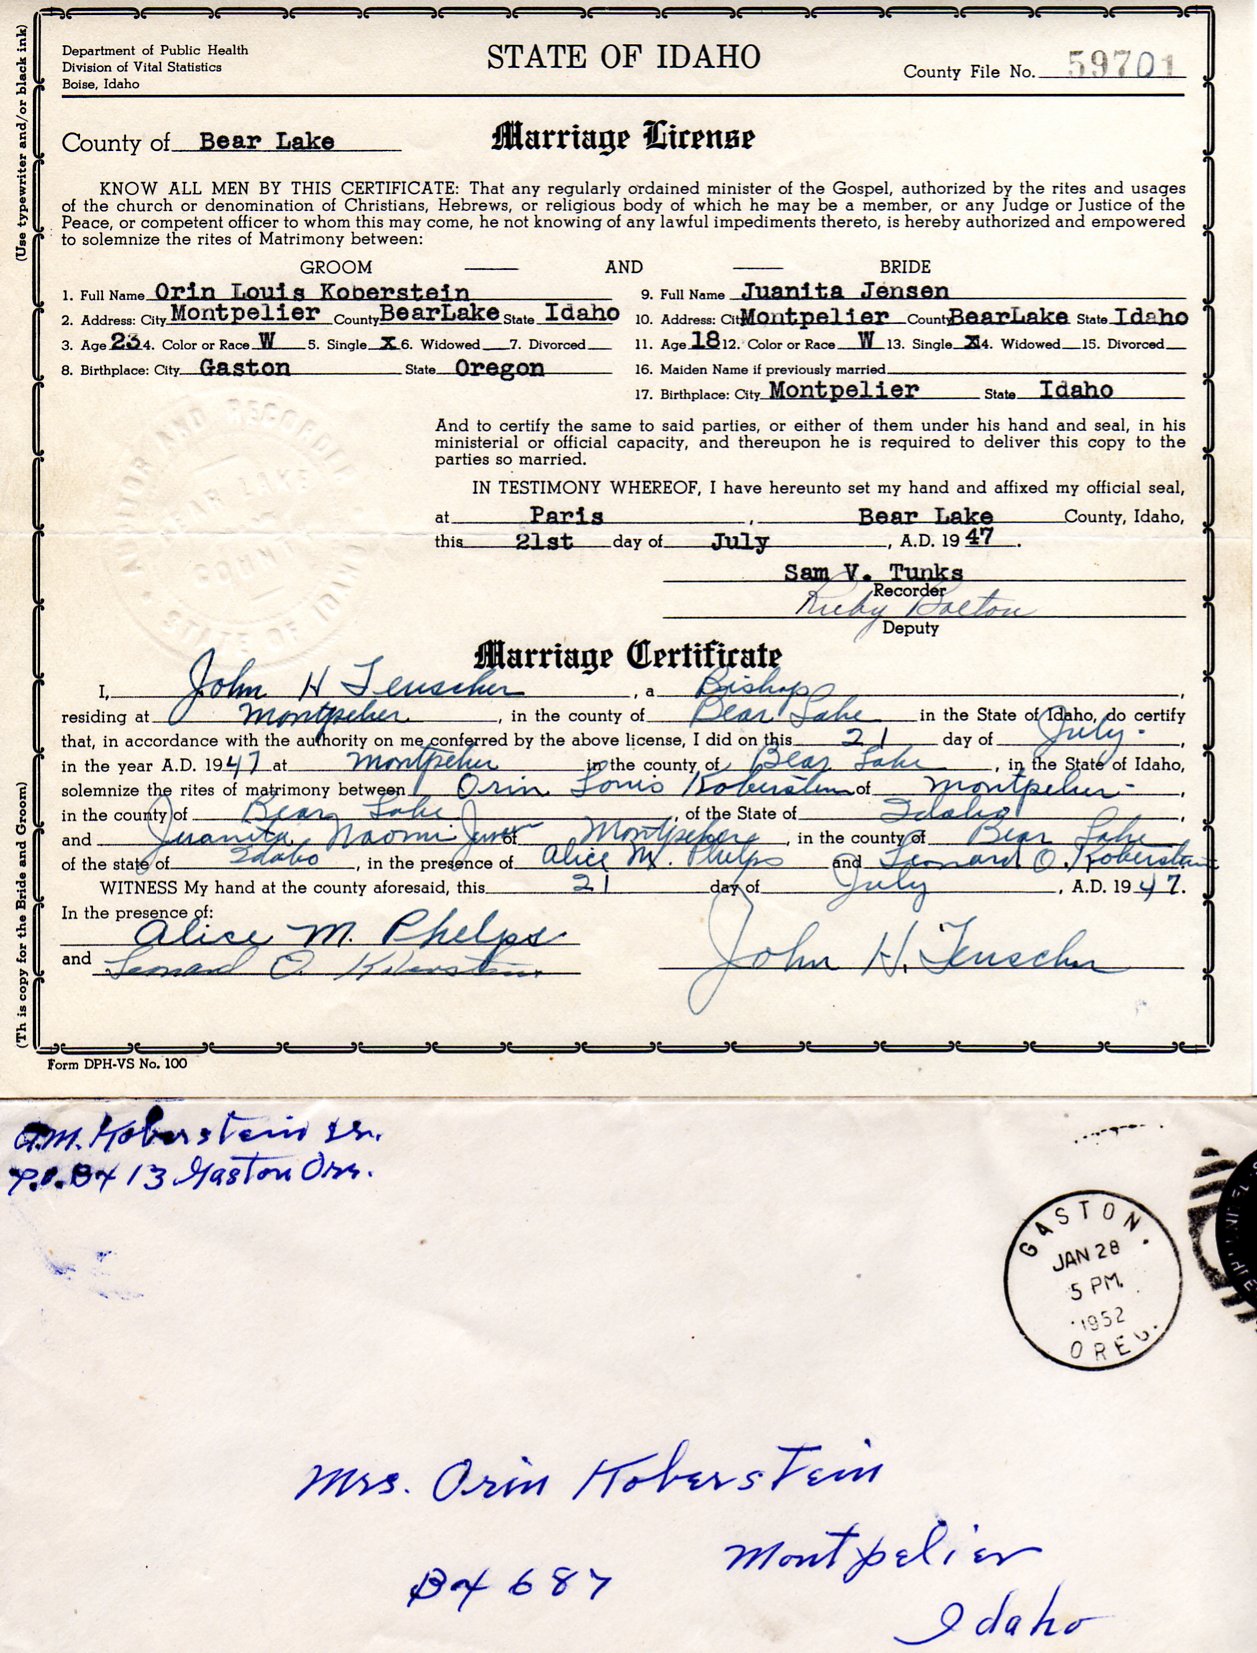 (Use typewriter and/or black ink)
(Th is copy for the Bride and Groom)
Department of Public Health
Division of Vital Statistics
Boise, Idaho
STATE OF IDAHO
County File No. 59701
County of Bear Lake
Marriage License
KNOW ALL MEN BY THIS CERTIFICATE: That any regularly ordained minister of the Gospel, authorized by the rites and usages
of the church or denomination of Christians, Hebrews, or religious body of which he may be a member, or any Judge or Justice of the
Peace, or competent officer to whom this may come, he not knowing of any lawful impediments thereto, is hereby authorized and empowered
to solemnize the rites of Matrimony between:
GROOM AND BRIDE
1. Full Name Orin Louis Koberstein
2. Address: City Montpelier County BearLake State Idaho
3. Age 23 4. Color or Race W 5. Single X 6. Widowed 7. Divorced
8. Birthplace: City Gaston State Oregon
9. Full Name Juanita Jensen
10. Address: City Montpelier County BearLake State Idaho
11. Age 18 12. Color or Race W 13. Single X 14. Widowed 15. Divorced
16. Maiden Name if previously married
17. Birthplace: City Montpelier State Idaho
AUDITOR AND RECORDER
BEAR LAKE
COUNTY
STATE OF IDAHO
And to certify the same to said parties, or either of them under his hand and seal, in his
ministerial or official capacity, and thereupon he is required to deliver this copy to the
parties so married.
IN TESTIMONY WHEREOF, I have hereunto set my hand and affixed my official seal,
at Paris, Bear Lake County, Idaho,
this 21st day of July, A.D. 1947.
Sam V. Tunks
Recorder
Ruby Bolton
Deputy
Marriage Certificate
I, John H Teuscher, a Bishop,
residing at Montpelier, in the county of Bear Lake in the State of Idaho, do certify
that, in accordance with the authority on me conferred by the above license, I did on this 21 day of July.,
in the year A.D. 1947 at Montpelier in the county of Bear Lake, in the State of Idaho,
solemnize the rites of matrimony between Orin Louis Koberstein of Montpelier-,
in the county of Bear Lake., of the State of Idaho,
and Juanita Naomi Jensen of Montpelier, in the county of Bear Lake
of the state of Idaho, in the presence of Alice M. Phelps and Leonard O. Koberstein
WITNESS My hand at the county aforesaid, this 21 day of July, A.D. 1947.
In the presence of:
Alice M. Phelps
and Leonard O. Koberstein
John H. Teuscher
Form DPH-VS No. 100
Koberstein Sr.
P.O. Bx 13 Gaston Ore.
GASTON.
JAN 28
5 PM.
1952
OREG.
Mrs. Orin Koberstein
Bx 687 Montpelier
Idaho